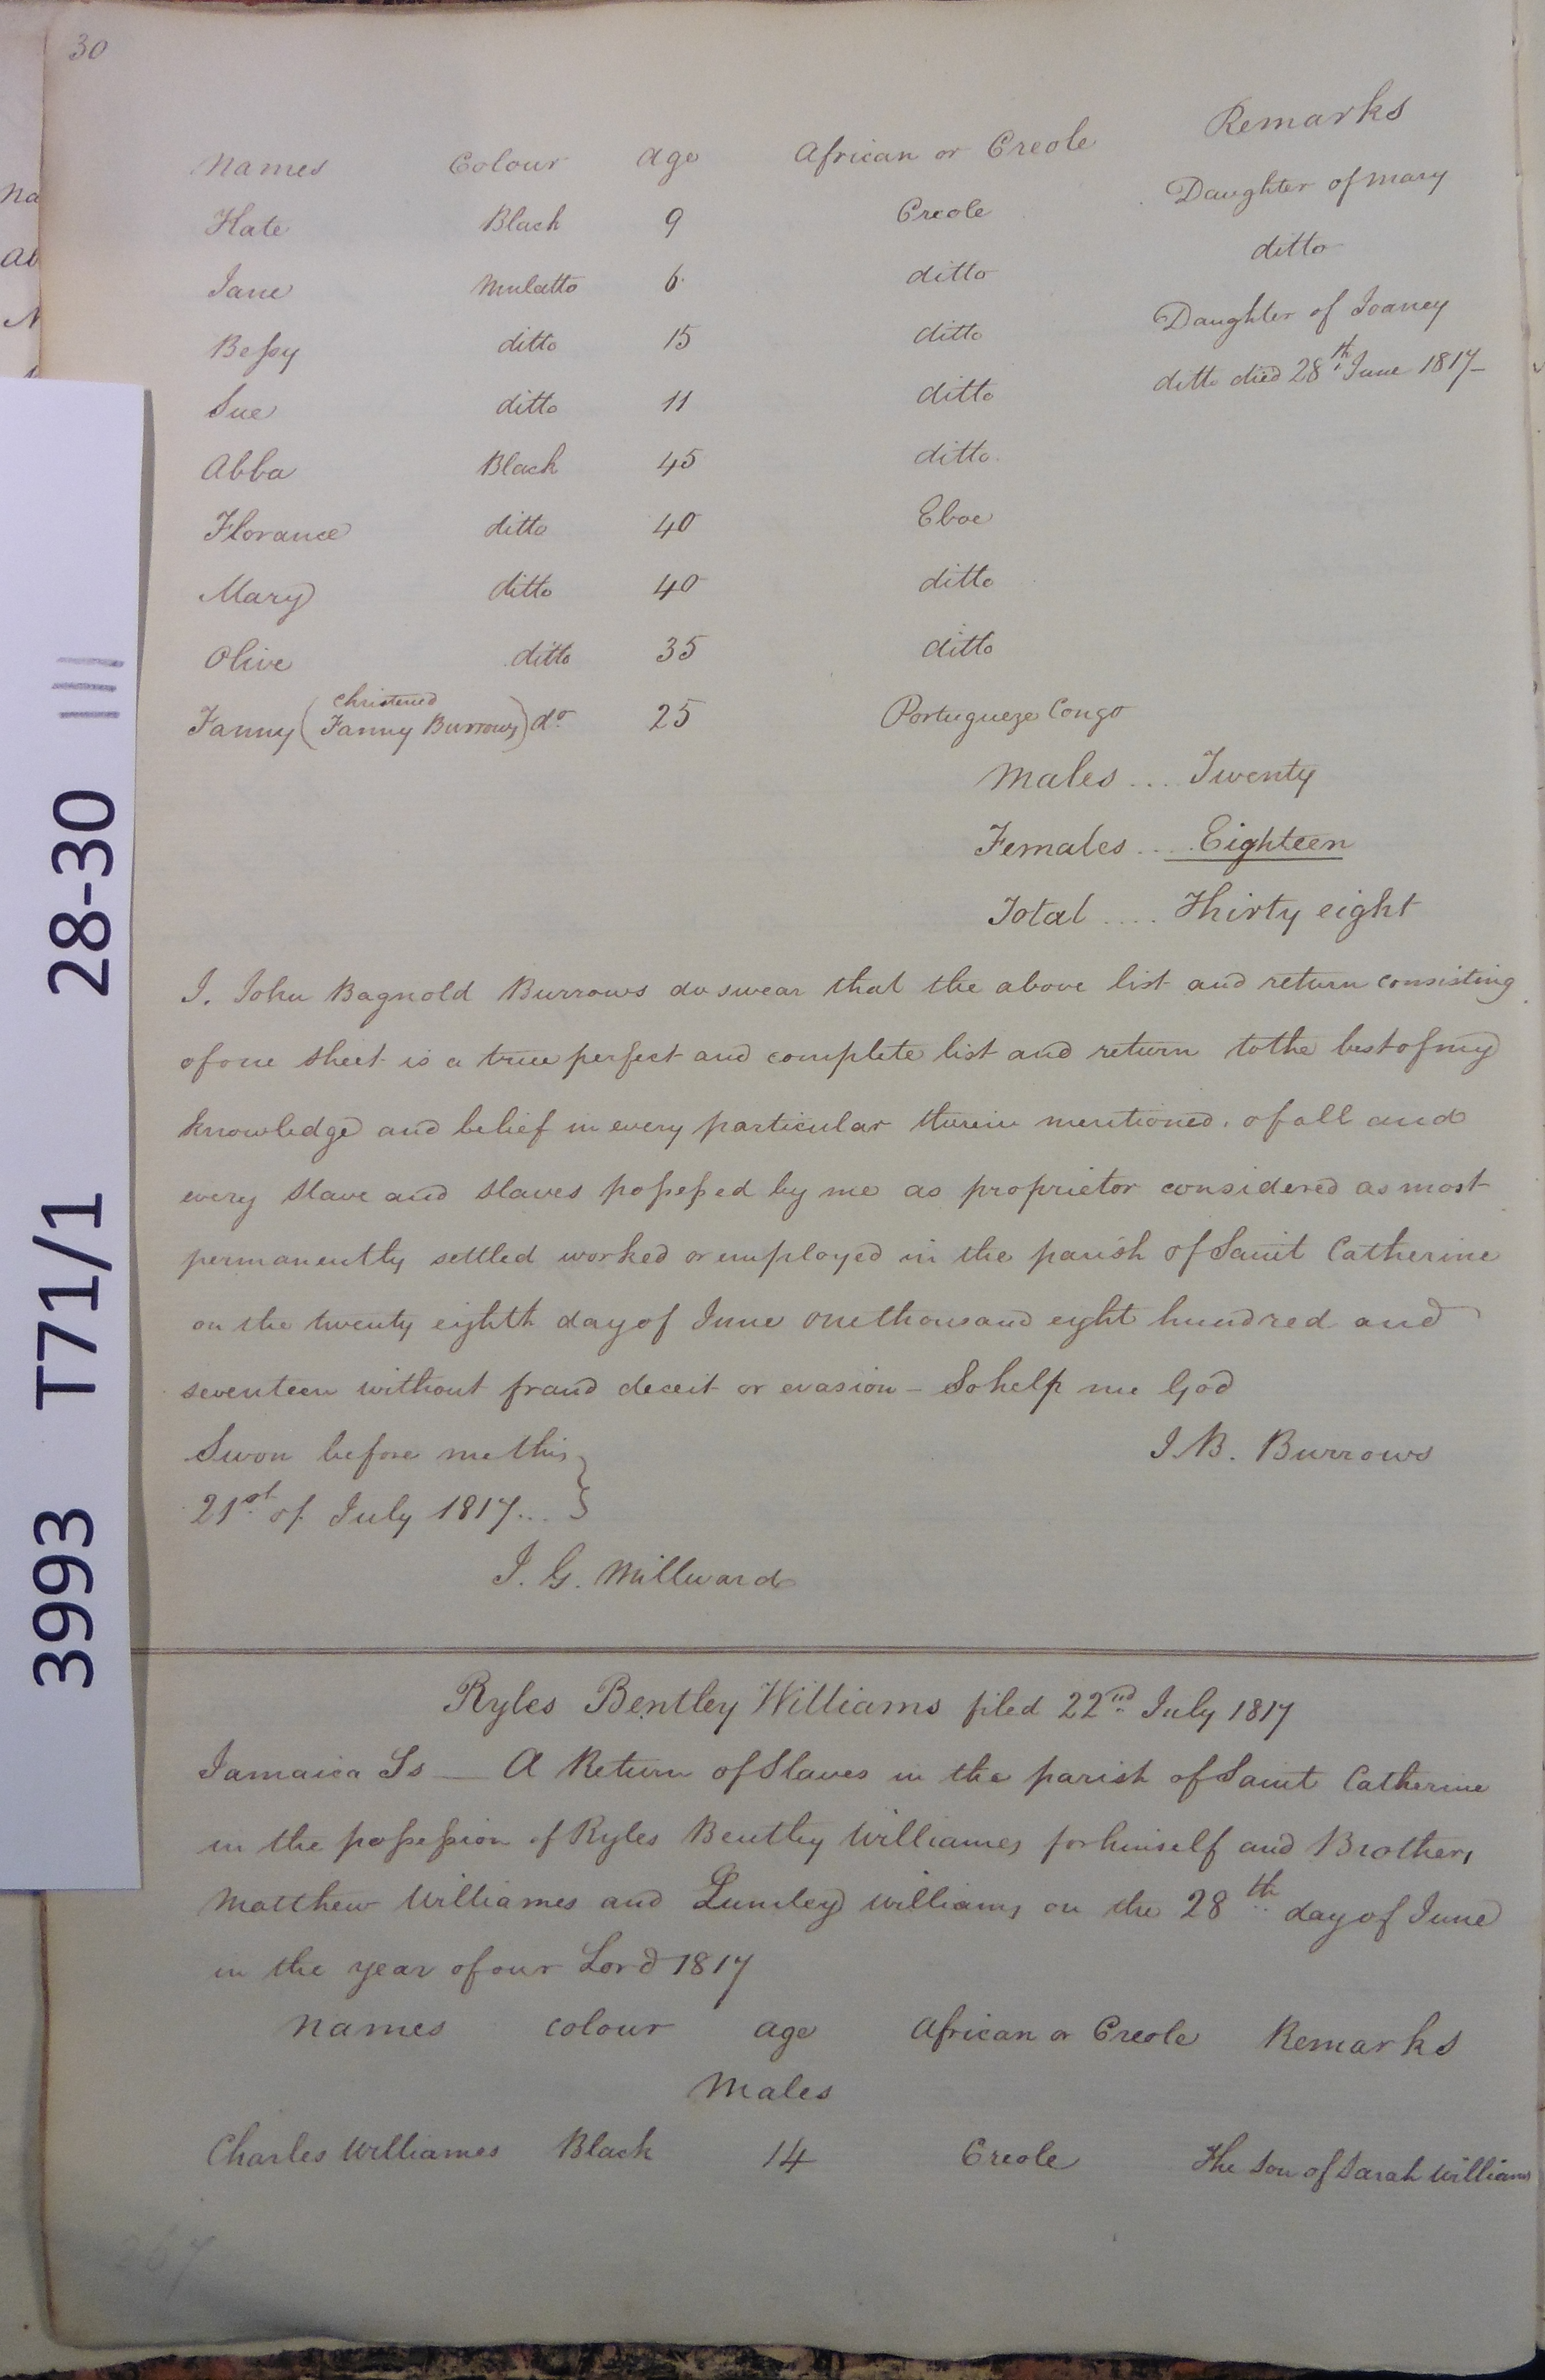 30
Names Colour Age African or Creole Remarks
Kate Black 9 Creole Daughter of Mary
Jane Mulatto 6 ditto ditto
Beſsy ditto 15 ditto Daughter of Joaney
Sue ditto 11 ditto ditto died 28th June 1817
Abba Black 45 ditto
Florance ditto 40 Eboe
Mary ditto 40 ditto
Olive ditto 35 ditto
Fanny (christened Fanny Burrows) do 25 Portugueze Congo
Males .... Twenty
Females .... Eighteen
Total .... Thirty eight
I. John Bagnold Burrows do swear that the above list and return consisting
of one sheet is a true perfect and complete list and return to the best of my
knowledge and belief in every particular therein mentioned. of all and
every slave and slaves poſseſsed by me as proprietor considered as most
permanently settled worked or employed in the parish of Saint Catherine
on the twenty eighth day of June one thousand eight hundred and
seventeen without fraud deceit or evasion – So help me God
Swon before me this
21st of July 1817...
J. B. Burrows
J. G. Millward
Ryles Bentley Williams filed 22nd July 1817
Jamaica Ss — A Return of Slaves in the parish of Saint Catherine
in the poſseſsion of Ryles Bentley Williames for himself and Brothers
Matthew Williames and Lumley Williams on the 28th day of June
in the year of our Lord 1817
names colour age African or Creole Remarks
Males
Charles Williames Black 14 Creole The Son of Sarah Williams
3993 T71/1 28-30